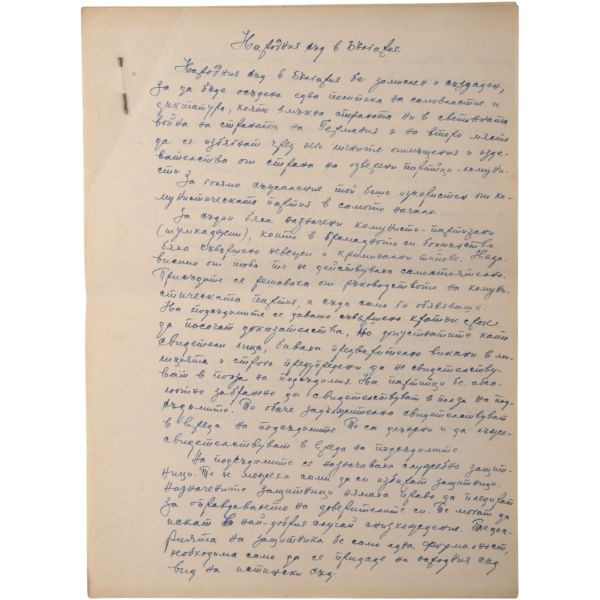 Народния съд в България.
Народния съд в България бе замислен и създаден,
за да бъде осъдена една политика на самовластие и
диктатура, която влъкна страната ни в световната
война на страната на Германия и на второ място
да се избягнат чрез него личните отмъщения и изде-
вателства от страна на озверени партийци-комуни-
сти.
За голямо съжаление той беше изкористен от ко-
мунистическата партия в самото начало.
За съдии бяха назначени комунисти-партизани
(шумкаджии), които в грамадното си болшинство
бяха съвършено невежи и криминални типове. Неза-
висимо от това те не действуваха самостоятелно.
Присъдите се решаваха от ръководството на комуни-
стическата партия, а съда само ги обявяваше.
На подсъдимите се даваше съвършено кратък срок
да посочат доказателства, но допуснатите като
свидетели лица, биваха предварително викани в ми-
лицията и строго предупредени да не свидетелству-
ват в полза на подсъдимия. На партийци бе абсо-
лютно забранено да свидетелствуват в полза на под-
съдимите. Те обаче задължително свидетелствуват
в вреда на подсъдимите. Те са длъжни и да лъжесвидетелствуват в вреда на подсъдимите.
На подсъдимите се назначаваха служебно защит-
ници. Те не можеха сами да си избират защитници.
Назначените защитници нямаха право да пледират
за оправдаването на доверителите си. Те могат да
искат в най-добрия случай снизхождение.
на защитника бе само една формалност,
необходима само да се придаде на народния съд
вид на истински съд.